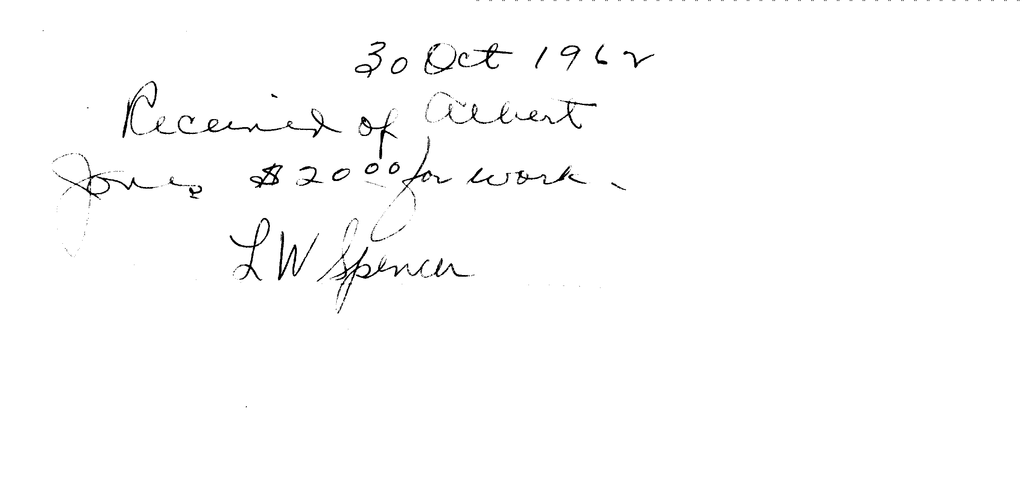 30 Oct 1962
Received of Albert
Jones $20 00 for work.
L W Spencer